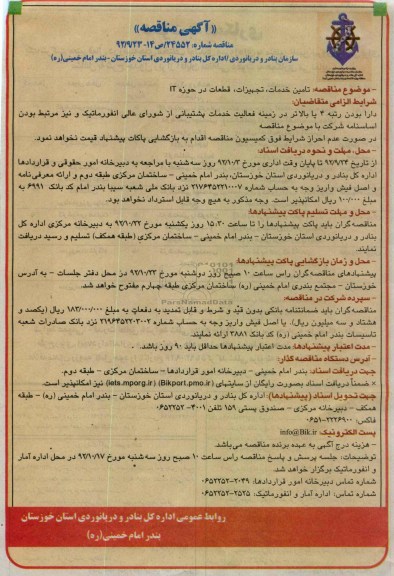 «آگهی مناقصه»
مناقصه شماره: ۲۴۵۵۲/ص/۱۴-۹۲/۹/۲۳
سازمان بنادر و دریانوردی /اداره کل بنادر و دریانوردی استان خوزستان -بندر امام خمینی(ره)
- موضوع مناقصه: تامین خدمات، تجهیزات، قطعات در حوزه IT
شرایط الزامی متقاضیان:
دارا بودن رتبه ۴ یا بالاتر در زمینه فعالیت خدمات پشتیبانی از شورای عالی انفورماتیک و نیز مرتبط بودن
اساسنامه شرکت با موضوع مناقصه
در صورت عدم احراز شرایط فوق کمیسیون مناقصه اقدام به بازگشایی پاکات پیشنهاد قیمت نخواهد نمود.
- محل، مهلت و نحوه دریافت اسناد:
از تاریخ ۹۲/۹/۲۴ تا پایان وقت اداری مورخ ۹۲/۱۰/۳ روز سه شنبه با مراجعه به دبیرخانه امور حقوقی و قراردادها
اداره کل بنادر و دریانوردی استان خوزستان،بندر امام خمینی - ساختمان مرکزی طبقه دوم و ارائه معرفی نامه
و اصل فیش واریز وجه به حساب شماره ۲۱۷۶۴۵۲۲۱۰۰۰۷ نزد بانک ملی شعبه سیبا بندر امام کد بانک ۶۹۹۱ به
مبلغ ۱۰۰/۰۰۰ ریال امکانپذیر است. وجه مذکور به هیچ وجه قابل استرداد نخواهد بود.
- محل و مهلت تسلیم پاکت پیشنهادها:
مناقصه گران باید پاکت پیشنهادها را تا ساعت ۱۵:۳۰ روز یکشنبه مورخ ۹۲/۱۰/۲۲ به دبیرخانه مرکزی اداره کل
بنادر و دریانوردی استان خوزستان - بندر امام خمینی - ساختمان مرکزی (طبقه همکف) تسلیم و رسید دریافت
نمایند.
- محل و زمان بازگشایی پاکت پیشنهادها:
پیشنهادهای مناقصه گران راس ساعت ۱۰ صبح روز دوشنبه مورخ ۹۲/۱۰/۲۳ در محل دفتر جلسات - به آدرس
خوزستان - مجتمع بندری امام خمینی (ره) ساختمان مرکزی طبقه چهارم مفتوح خواهد شد.
- سپرده شرکت در مناقصه:
مناقصه گران باید ضمانتنامه بانکی بدون قید و شرط و قابل تمدید به دفعات به مبلغ ۱۸۳/۰۰۰/۰۰۰ ریال (یکصد و
هشتاد و سه میلیون ریال). یا اصل فیش واریز وجه به حساب شماره ۲۱۹۶۴۵۲۲۰۳۰۰۲ نزد بانک صادرات شعبه
تاسیسات بندر امام خمینی (ره) کد بانک ۳۸۸۱ ارائه نمایند.
- مدت اعتبار پیشنهادها: مدت اعتبار پیشنهادها حداقل باید ۹۰ روز باشد.
- آدرس دستگاه مناقصه گذار:
جهت دریافت اسناد: بندر امام خمینی - دبیرخانه امور قراردادها - ساختمان مرکزی - طبقه دوم.
× ضمناً دریافت اسناد بصورت رایگان از سایتهای (Bikport.pmo.ir) (iets.mporg.ir) نیز امکانپذیر است.
جهت تحویل اسناد (پیشنهادها): اداره کل بنادر و دریانوردی استان خوزستان - بندر امام خمینی (ره) - طبقه
همکف - دبیرخانه مرکزی - صندوق پستی ۱۵۹ تلفن ۴۰۰۱-۰۶۵۲۲۵۲
فاکس: ۰۶۵۱-۲۲۲۶۹۰۰
پست الکترونیک: info@Bik.ir
- هزینه درج آگهی به عهده برنده مناقصه می باشد.
توضیحات: جلسه پرسش و پاسخ مناقصه راس ساعت ۱۰ صبح روز سه شنبه مورخ ۹۲/۱۰/۱۷ در محل اداره آمار
و انفورماتیک برگزار خواهد شد.
شماره تماس دبیرخانه امور قراردادها: ۲۰۴۹-۰۶۵۲۲۵۲
شماره تماس: اداره آمار و انفورماتیک: ۲۵۲۵-۰۶۵۲۲۵۲
روابط عمومی اداره کل بنادر و دریانوردی استان خوزستان
بندر امام خمینی(ره)